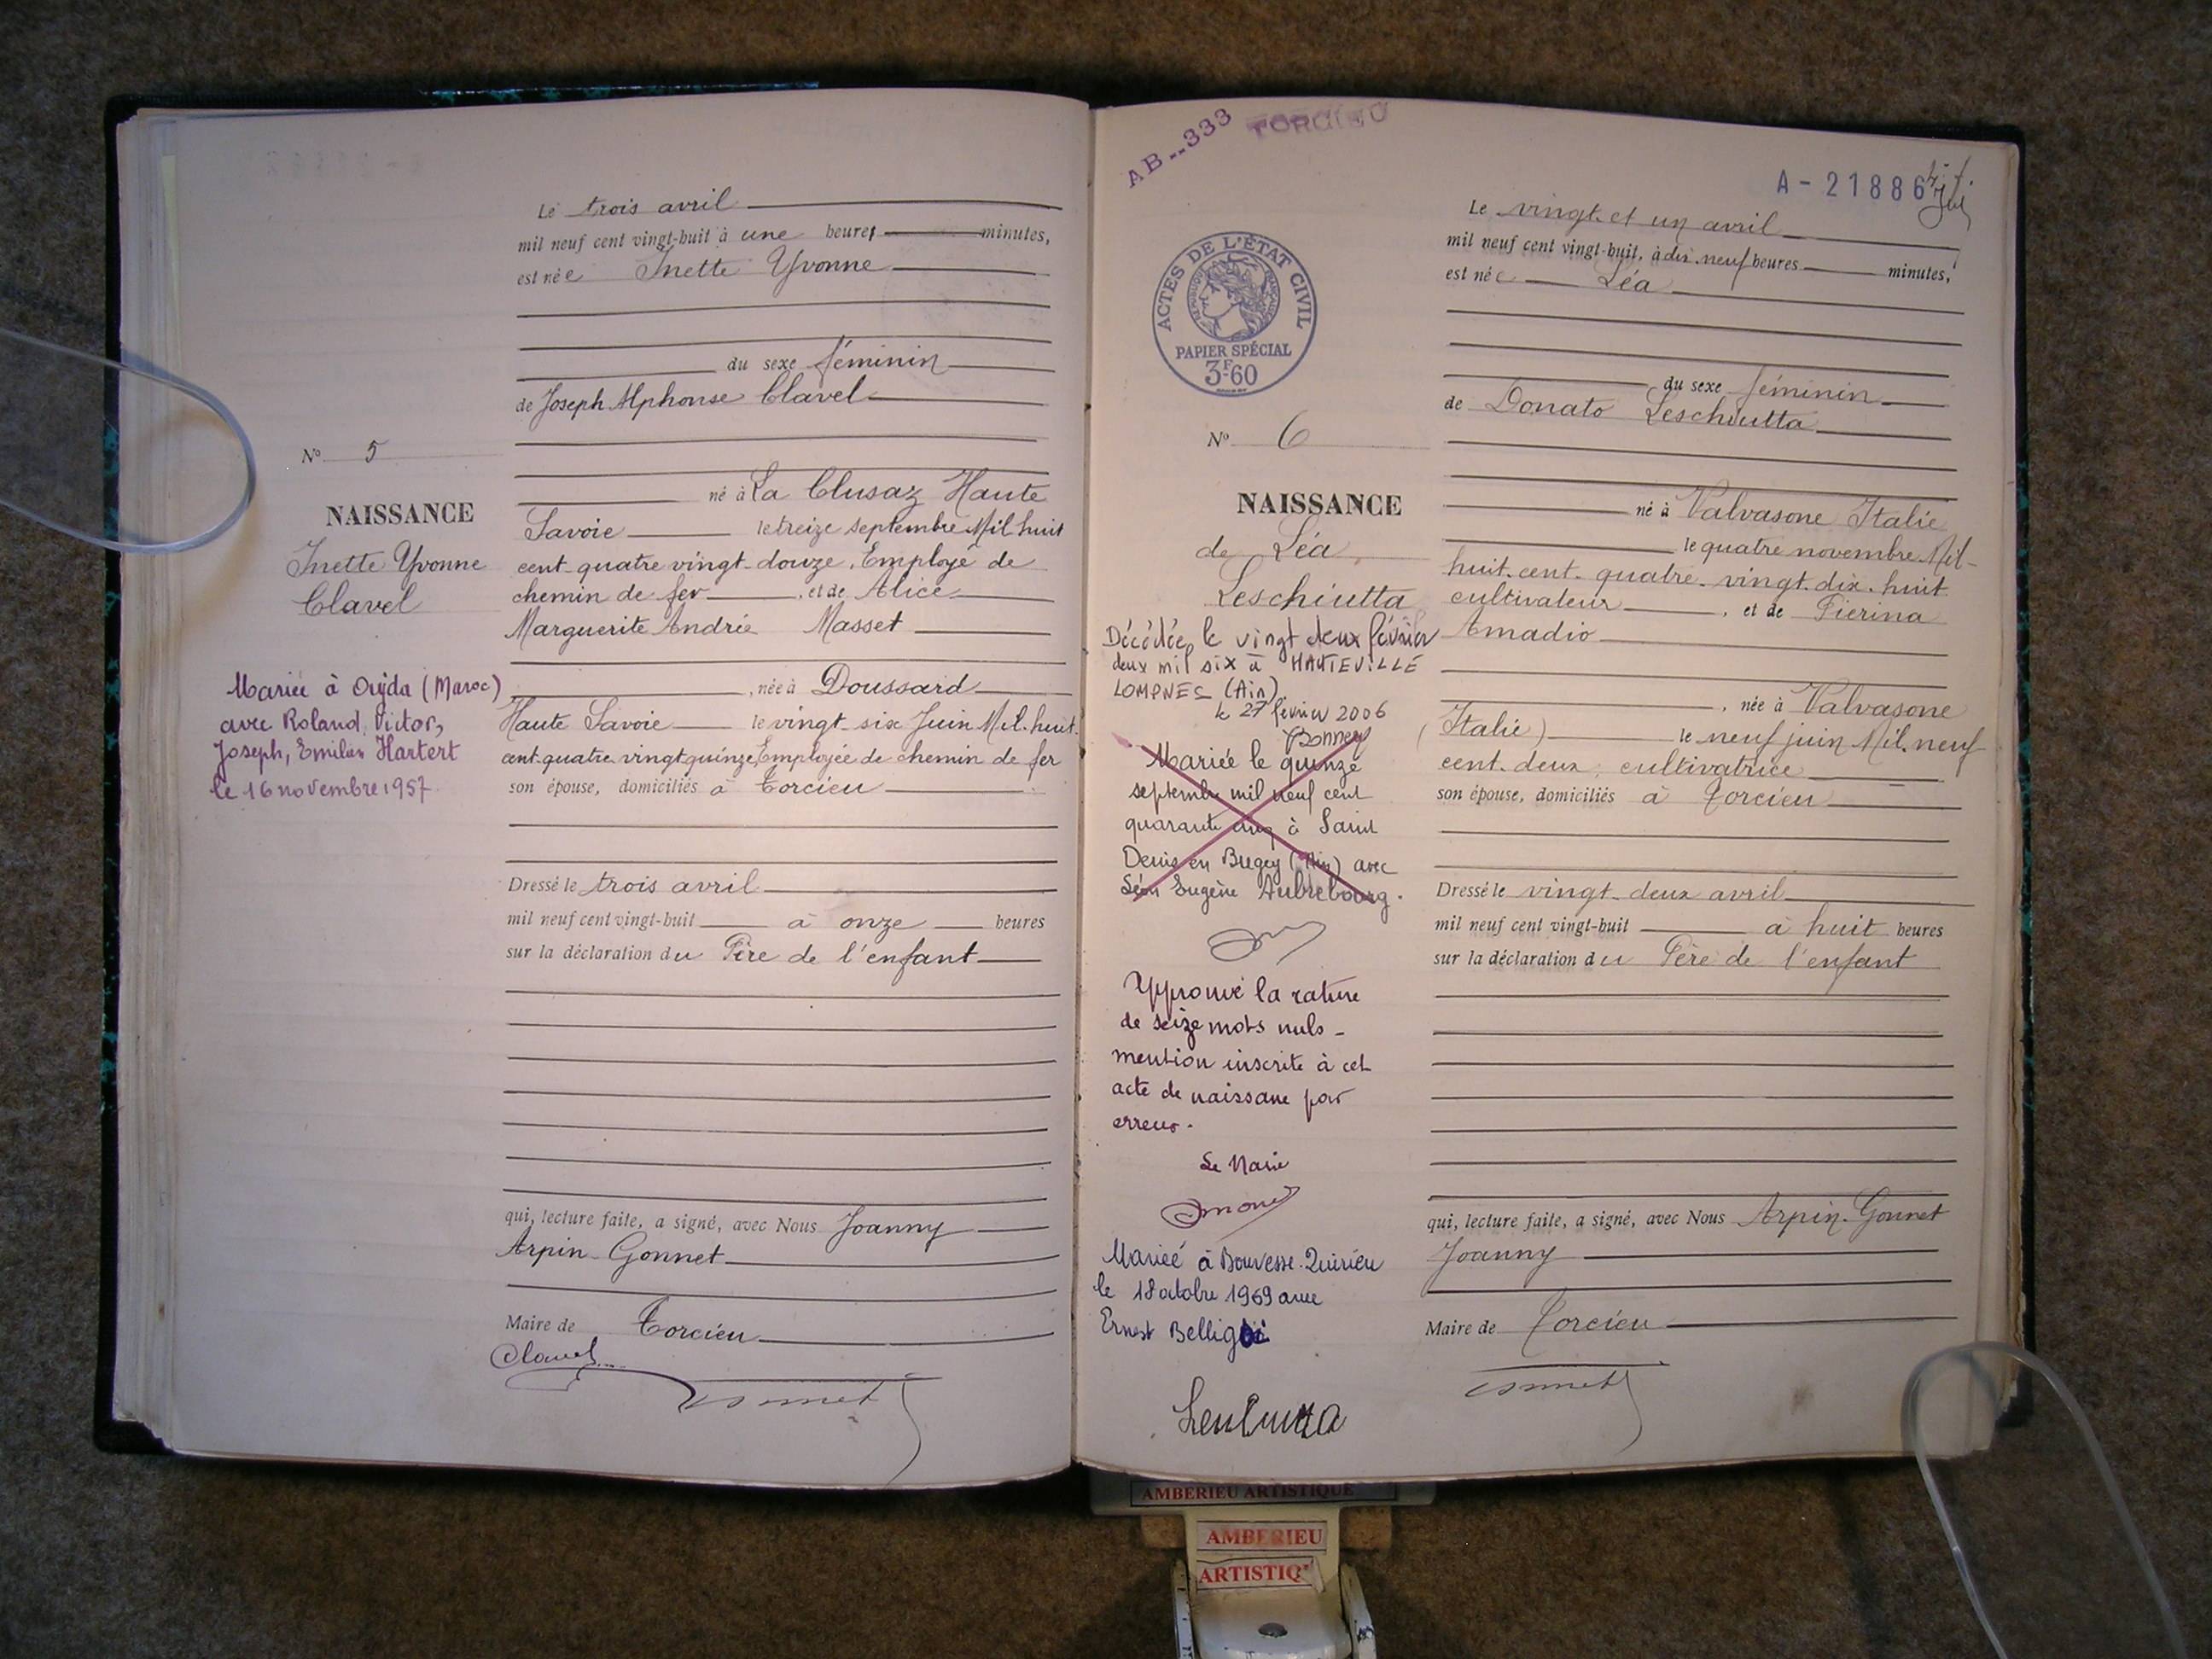 Le trois avril
mil neuf cent vingt-huit à une heure minutes,
est née Inette Yvonne
du sexe féminin
de Joseph Alphonse Clavel
né à La Clusaz Haute
Savoie le treize septembre Mil huit
cent quatre vingt douze, Employé de
chemin de fer, et de Alice
Marguerite Andrée Masset
, née à Doussard
Haute Savoie le vingt six Juin Mil huit
cent quatre vingt quinze, Employée de chemin de fer
son épouse, domiciliés à Torcieu
Dressé le trois avril
mil neuf cent vingt-huit à onze heures
sur la déclaration du Père de l'enfant
qui, lecture faite, a signé, avec Nous Joanny
Arpin-Gonnet
Maire de Torcieu
Clavel
Gonnet
N° 5
NAISSANCE
Inette Yvonne
Clavel
Mariée à Oujda (Maroc)
avec Roland, Victor,
Joseph, Emilien Hartert
le 16 novembre 1957
AB--333 TORCIEU
A-21886
ACTES DE L'ÉTAT CIVIL
RÉPUBLIQUE FRANÇAISE
PAPIER SPÉCIAL
3F60
N° 6
NAISSANCE
de Léa
Leschiutta
Décédée le vingt deux février
deux mil six à HAUTEVILLE
LOMPNES (Ain)
le 27 février 2006
Mariée le quinze
septembre mil neuf cent
quarante cinq à Saint
Denis en Bugey (Ain) avec
Léon Eugène Aubrebourg.
Approuvé la rature
de seize mots nuls -
mention inscrite à cet
acte de naissance par
erreur.
Le Maire
Mariée à Bouvesse-Quirieu
le 18 octobre 1969 avec
Ernest
Leschiutta
Le vingt et un avril
mil neuf cent vingt-huit, à dix-neuf heures minutes,
est née Léa
du sexe féminin
de Donato Leschiutta
né à Valvasone Italie
le quatre novembre Mil-
huit-cent-quatre-vingt-dix-huit
cultivateur, et de Pierina
Amadio
, née à Valvasone
(Italie) le neuf juin Mil neuf
cent-deux, cultivatrice
son épouse, domiciliés à Torcieu
Dressé le vingt-deux avril
mil neuf cent vingt-huit à huit heures
sur la déclaration du Père de l'enfant
qui, lecture faite, a signé, avec Nous Arpin-Gonnet
Joanny
Maire de Torcieu
Gonnet
AMBERIEU ARTISTIQUE
AMBERIEU
ARTISTIQ